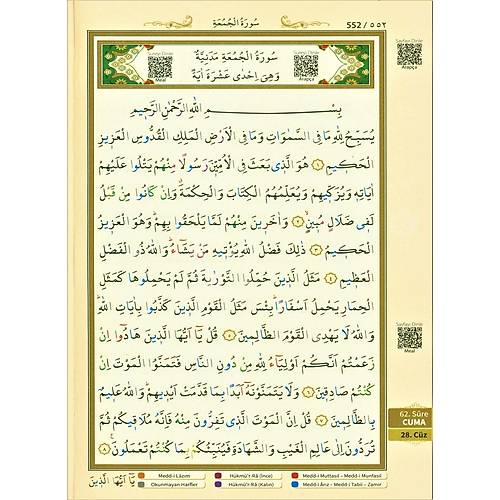 سُورَةُ الْجُمُعَةِ
552 / ٥٥٢
Sayfayı Dinle
Arapça
Sureyi Dinle
Meal
سُورَةُ الْجُمُعَةِ مَدَنِيَّةٌ
وَهِيَ اِحْدٰى عَشْرَةَ اٰيَةً
Sureyi Dinle
Arapça
بِسْمِ اللّٰهِ الرَّحْمٰنِ الرَّحٖيمِ
يُسَبِّحُ لِلّٰهِ مَا فِي السَّمٰوَاتِ وَمَا فِي الْاَرْضِ الْمَلِكِ الْقُدُّوسِ الْعَزٖيزِ
الْحَكٖيمِ ﴿١﴾ هُوَ الَّذٖي بَعَثَ فِي الْاُمِّيّٖنَ رَسُولًا مِنْهُمْ يَتْلُوا عَلَيْهِمْ
اٰيَاتِهٖ وَيُزَكّٖيهِمْ وَيُعَلِّمُهُمُ الْكِتَابَ وَالْحِكْمَةَ وَاِنْ كَانُوا مِنْ قَبْلُ
لَفٖي ضَلَالٍ مُبٖينٍ ﴿٢﴾ وَاٰخَرٖينَ مِنْهُمْ لَمَّا يَلْحَقُوا بِهِمْ وَهُوَ الْعَزٖيزُ
الْحَكٖيمُ ﴿٣﴾ ذٰلِكَ فَضْلُ اللّٰهِ يُؤْتٖيهِ مَنْ يَشَٓاءُ وَاللّٰهُ ذُو الْفَضْلِ
الْعَظٖيمِ ﴿٤﴾ مَثَلُ الَّذٖينَ حُمِّلُوا التَّوْرٰيةَ ثُمَّ لَمْ يَحْمِلُوهَا كَمَثَلِ
الْحِمَارِ يَحْمِلُ اَسْفَارًا بِئْسَ مَثَلُ الْقَوْمِ الَّذٖينَ كَذَّبُوا بِاٰيَاتِ اللّٰهِ
وَاللّٰهُ لَا يَهْدِي الْقَوْمَ الظَّالِمٖينَ ﴿٥﴾ قُلْ يَٓا اَيُّهَا الَّذٖينَ هَادُٓوا اِنْ
زَعَمْتُمْ اَنَّكُمْ اَوْلِيَٓاءُ لِلّٰهِ مِنْ دُونِ النَّاسِ فَتَمَنَّوُا الْمَوْتَ اِنْ
كُنْتُمْ صَادِقٖينَ ﴿٦﴾ وَلَا يَتَمَنَّوْنَهُٓ اَبَدًا بِمَا قَدَّمَتْ اَيْدٖيهِمْ وَاللّٰهُ عَلٖيمٌ
بِالظَّالِمٖينَ ﴿٧﴾ قُلْ اِنَّ الْمَوْتَ الَّذٖي تَفِرُّونَ مِنْهُ فَاِنَّهُ مُلَاقٖيكُمْ ثُمَّ
تُرَدُّونَ اِلٰى عَالِمِ الْغَيْبِ وَالشَّهَادَةِ فَيُنَبِّئُكُمْ بِمَا كُنْتُمْ تَعْمَلُونَ ﴿٨﴾
Sayfayı Dinle
Meal
62. Sûre
CUMA
28. Cüz
يَٓا اَيُّهَا الَّذٖينَ
Medd-i Lâzım
Hükmü'r Râ (İnce)
Medd-i Muttasıl – Medd-i Munfasıl
Okunmayan Harfler
Hükmü'r Râ (Kalın)
Medd-i Ârız - Medd-i Tabii - Zamir